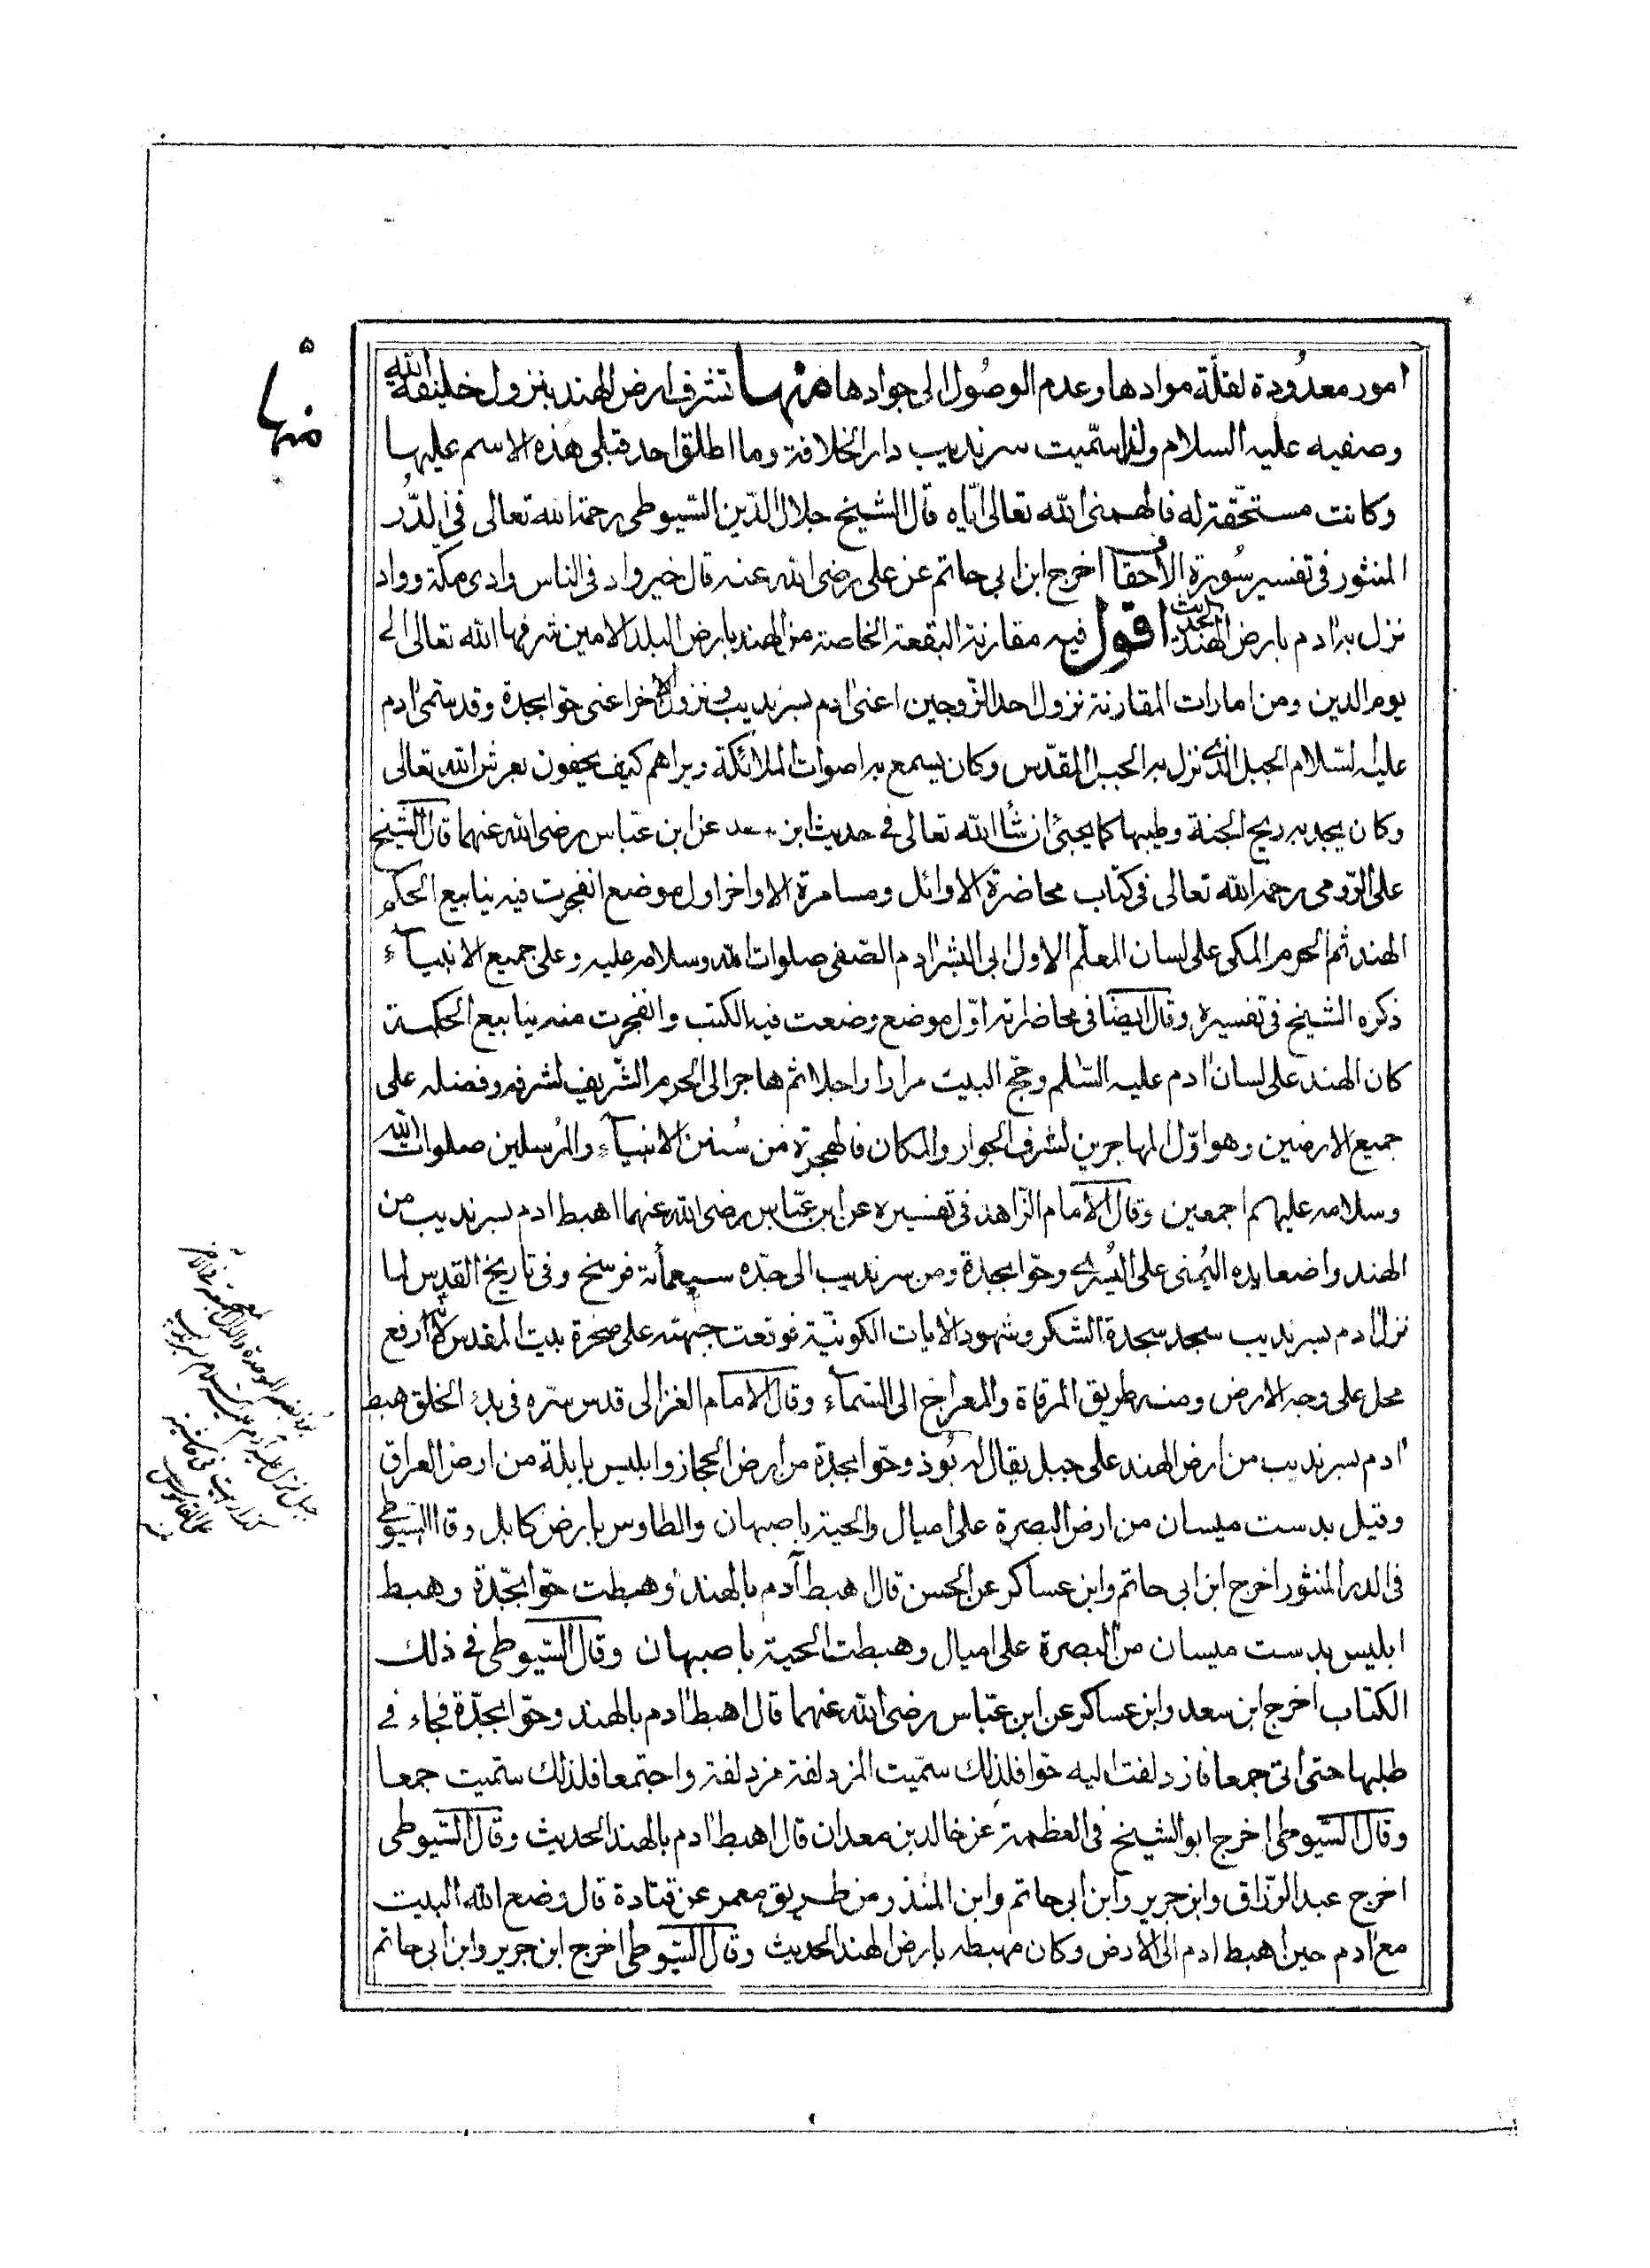 امور معدودة لقلّة موادها وعدم الوصُول الى جوادها منها تشرف ارض الهند بنزول خليفة الله
وصفيه عليه السلام ولذا سمّيت سرنديب دار الخلافة وما اطلق احد قبلى هذه الاسم عليها
وكانت مستحّقة له فالهمنى الله تعالى ايّاه قال الشيخ جلال الدّين السّيوطى رحمة الله تعالى فى الدُّر
المنثور فى تفسير سُورة الاحقاف اخرج ابن ابى حاتم عن على رضى الله عنه قال خير واد فى الناس وادى مكّة وواد
نزل به ادم بارض الهند الحديث اقول فيه مقارنة البقعة الخاصة من الهند بارض البلد الامين شرفها الله تعالى الى
يوم الدين ومن امارات المقارنة نزول احد الزّوجين اعنى ادم بسرنديب ونزول الاخر اعنى حوا بجدة وقد سمّى ادم
عليه السّلام الجبل الذى نزل به الجبل المقدّس وكان يسمع به اصوات الملائكة ويراهم كيف يحفون بعرش الله تعالى
وكان يجد به ريح الجنة وطيبها كما يجئ ان شأ الله تعالى فى حديث ابن سعد عن ابن عبّاس رضى الله عنهما قال الشيخ
على الرّومى رحمه الله تعالى فى كتّاب محاضرة الاوائل ومسامرة الاواخر اول موضع انفجرت فيه ينابيع الحكم
الهند ثم الحرم المكى على لسان المعلّم الاول ابى البشر ادم الصّفى صلوات الله وسلامه عليه وعلى جميع الانبيآء
ذكره الشيخ فى تفسيره وقال ايضًا فى محاضراته اوّل موضع وضعت فيه الكتب وانفجرت منه ينابيع الحكمة
كان الهند على لسان ادم عليه السّلم وحجّ البيت مرارا راجلا ثم هاجر الى الحرم الشّريف لشرفه وفضله على
جميع الارضين وهو اوّل المهاجرين لشرف الجوار والمكان فالهجرة من سُنن الانبيآء والمُرسلين صلوات الله
وسلامه عليهم اجمعين وقال الامام الزّاهد فى تفسيره عن ابن عبّاس رضى الله عنهما اهبط ادم بسرنديب من
الهند واضعا يده اليُمنى على اليُسرى وحوّا بجدة ومن سرنديب الى جدّه سبعمأئة فرسخ وفى تاريخ القدس لما
نزل ادم بسرنديب سجد سجدة الشكر وشهود الايات الكونيّة فوقعت جبهته على صخرة بيت المقدس لانها ارفع
محل على وجه الارض ومنه طريق المرقاة والمعراج الى السّمآء وقال الامام الغزالى قدس سّره فى بدء الخلق هبط
ادم بسرنديب من ارض الهند على جبل يقال له بُوذ وحوّا بجدة من ارض الحجاز وابليس بابلة من ارض العراق
وقيل بدست ميسان من ارض البصرة على اميال والحية باصبهان والطاوس بارض كابل وقال السّيوطى
فى الدر المنثور اخرج ابن ابى حاتم وابن عساكر عن الحسن قال اهبط آدم بالهند وهبطت حوّا بجّدة وهبط
ابليس بدست ميسان من البصرة على اميال وهبطت الحية باصبهان وقال السّيوطى فى ذلك
الكتّاب اخرج ابن سعد وابن عساكر عن ابن عبّاس رضى الله عنهما قال اهبط ادم بالهند وحوّا بجدّة فجاء فى
طلبها حتى اتى جمعا فازدلفت اليه حوّا فلذلك سمّيت المزدلفة مزدلفة واجتمعا فلذلك سمّيت جمعا
وقال السّيوطى اخرج ابو الشيخ فى العظمة عن خالد بن معدان قال اهبط ادم بالهند الحديث وقال السّيوطى
اخرج عبد الرّزاق وابن جرير وابن ابى حاتم وابن المنذر من طريق معمر عن قتادة قال وضع الله البيت
مع ادم حين اهبط ادم الى الارض وكان مهبطه بارض الهند الحديث وقال السّيوطى اخرج ابن جرير وابن ابى حاتم
٥
منها